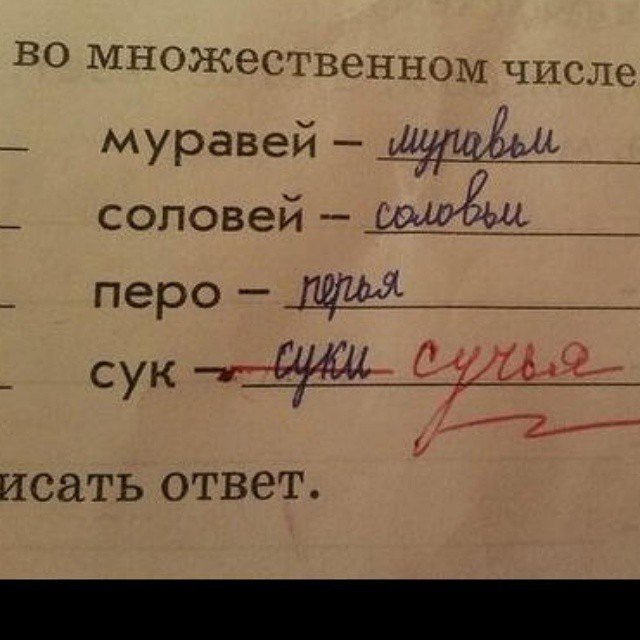 во множественном числе
муравей – муравьи
соловей – соловьи
перо – перья
сук – суки сучья
исать ответ.